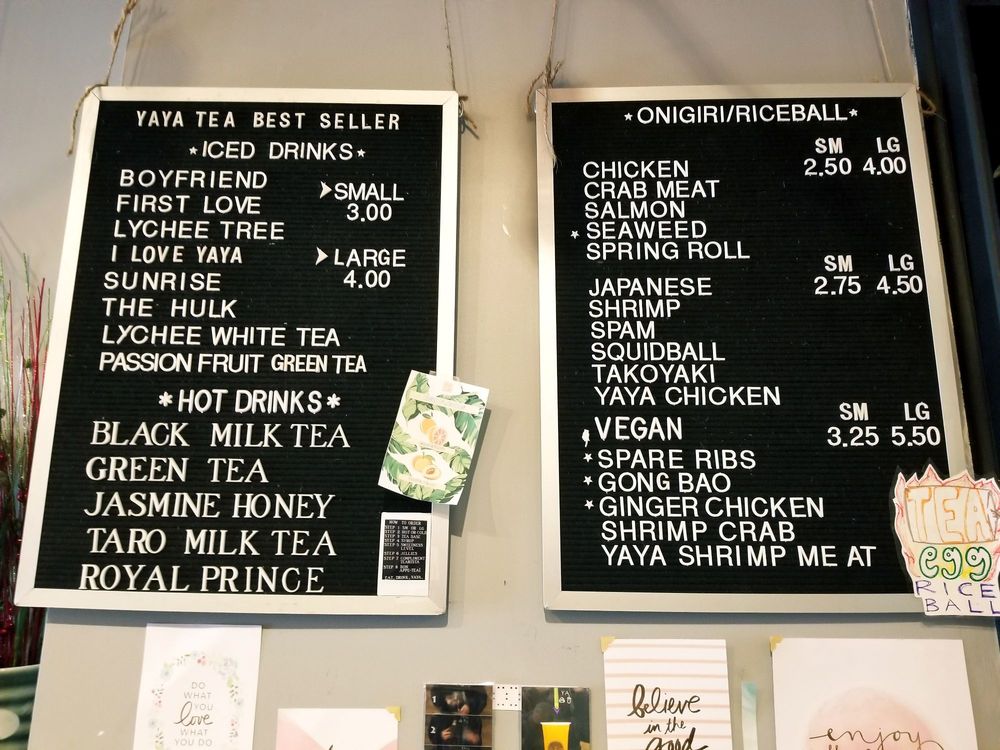 YAYA TEA BEST SELLER
*ICED DRINKS*
BOYFRIEND
FIRST LOVE
LYCHEE TREE
I LOVE YAYA
SUNRISE
THE HULK
LYCHEE WHITE TEA
PASSION FRUIT GREEN TEA
SMALL
3.00
LARGE
4.00
*HOT DRINKS*
BLACK MILK TEA
GREEN TEA
JASMINE HONEY
TARO MILK TEA
ROYAL PRINCE
HOW TO ORDER
*ONIGIRI/RICEBALL*
SM LG
2.50 4.00
CHICKEN
CRAB MEAT
SALMON
*SEAWEED
SPRING ROLL
SM LG
2.75 4.50
JAPANESE
SHRIMP
SPAM
SQUIDBALL
TAKOYAKI
YAYA CHICKEN
SM LG
3.25 5.50
VEGAN
*SPARE RIBS
*GONG BAO
*GINGER CHICKEN
SHRIMP CRAB
YAYA SHRIMP ME AT
TEA
egg
RICE
BALL
DO
WHAT
YOU
love
WHAT
YOU DO
1
2
YA
believe
in the
good
enjoy